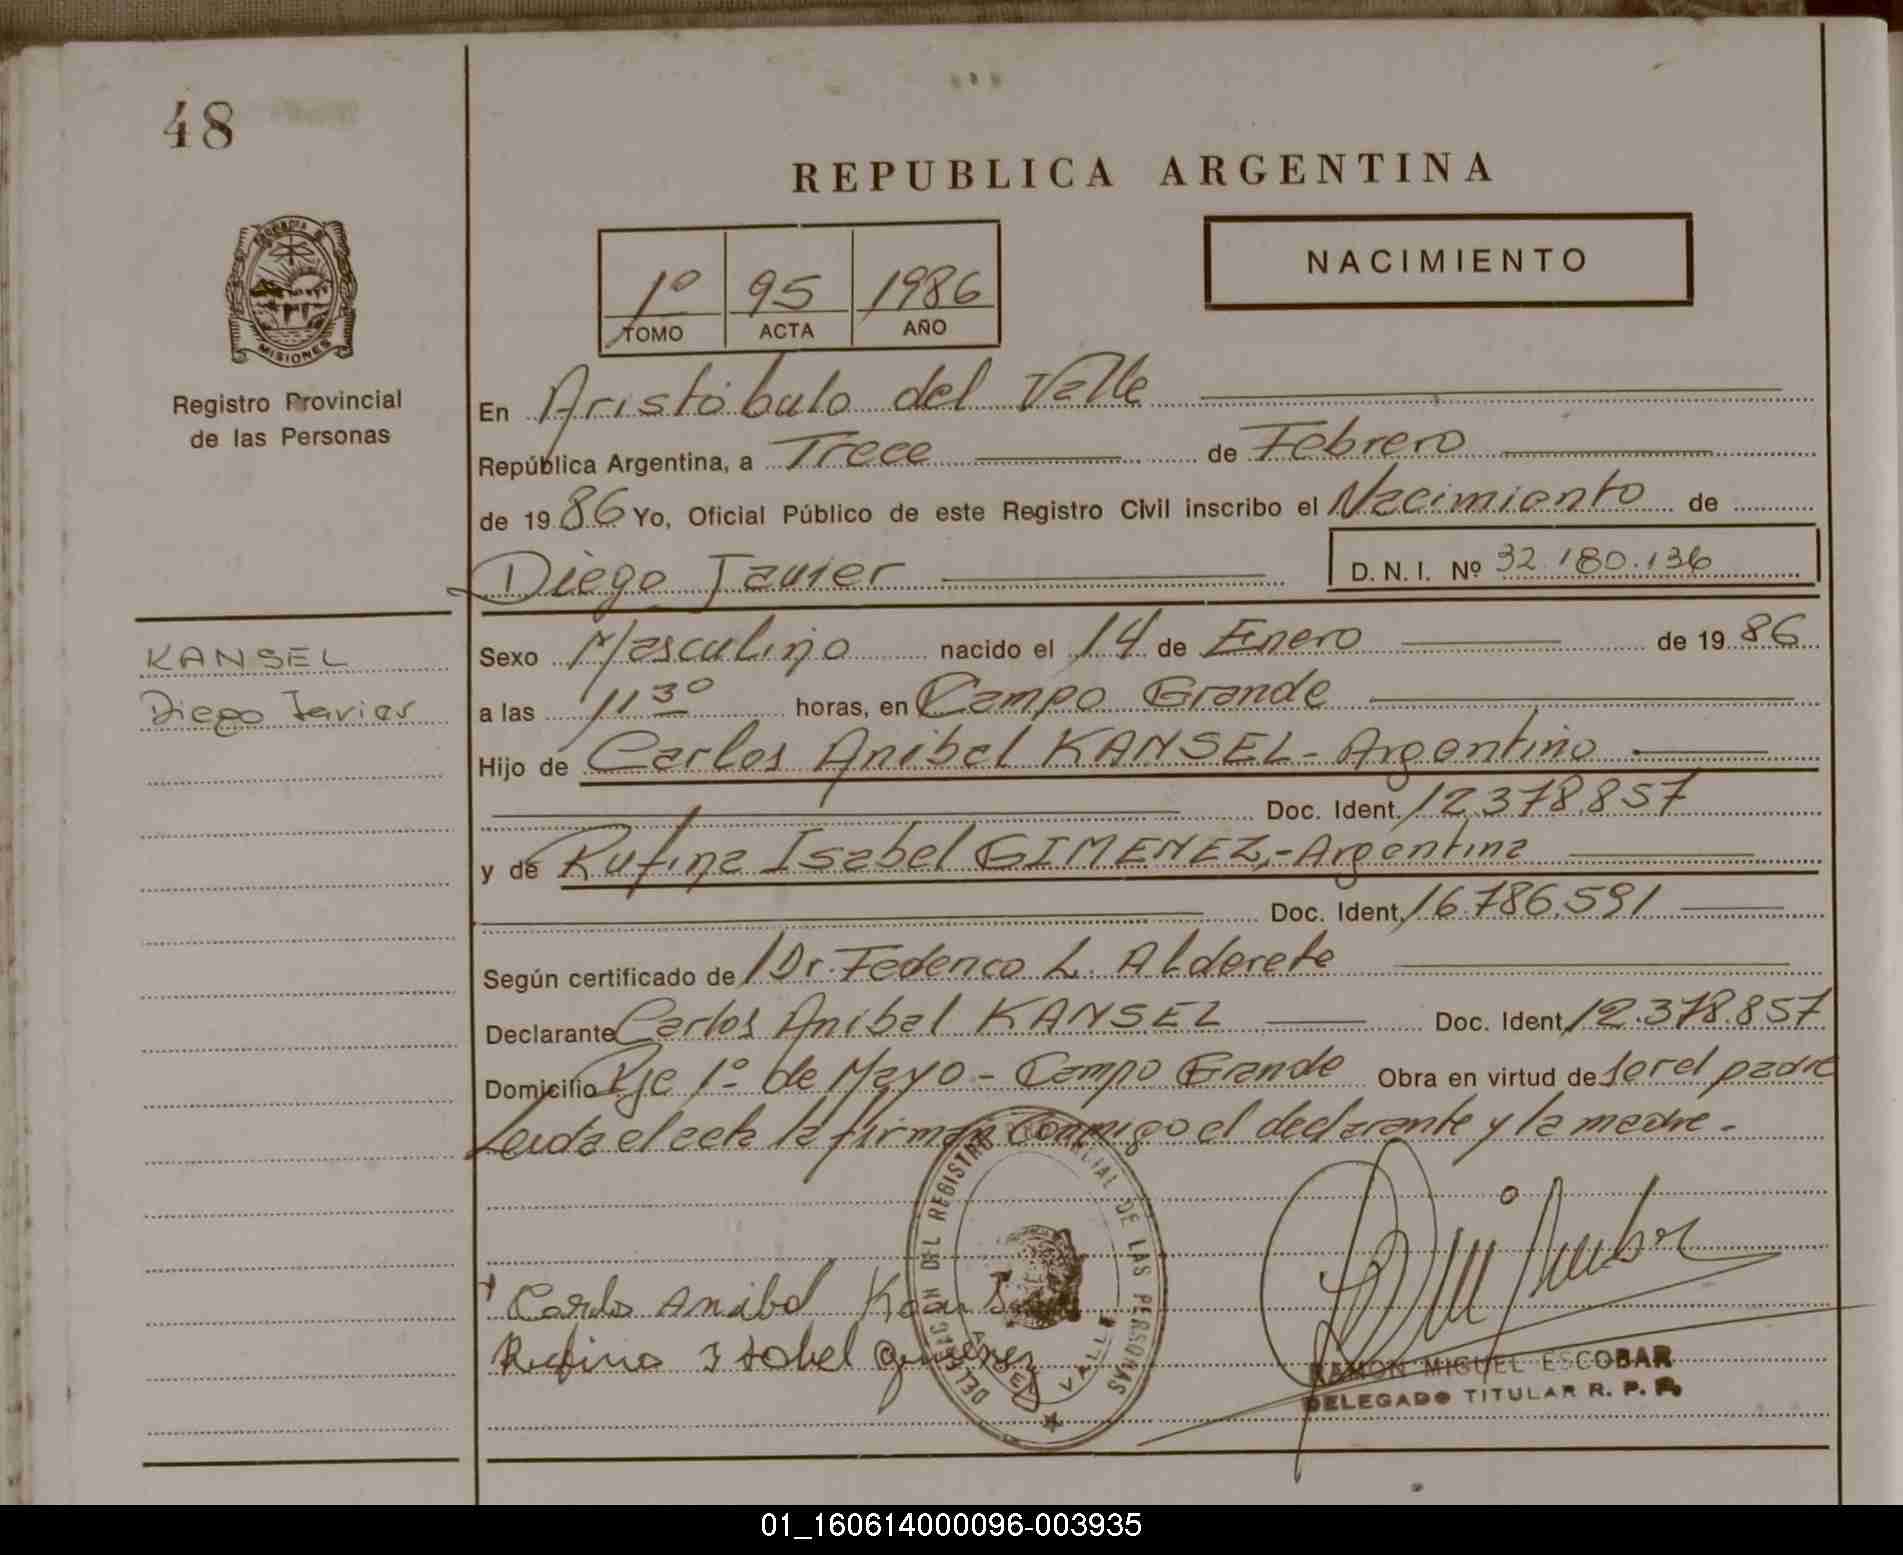 48
REPUBLICA ARGENTINA
NACIMIENTO
1º 95 1986
TOMO ACTA AÑO
MISIONES
Registro Provincial
de las Personas
En Aristóbulo del Valle
República Argentina, a Trece de Febrero
de 1986 Yo, Oficial Público de este Registro Civil inscribo el Nacimiento de
Diego Javier D. N. I. Nº 32.180.136
KANSEL
Diego Javier
Sexo Masculino nacido el 14 de Enero de 1986
a las 11 30 horas, en Campo Grande
Hijo de Carlos Anibal KANSEL - Argentino
Doc. Ident. 12.378.857
y de Rufina Isabel GIMENEZ,- Argentina
Doc. Ident. 16.786.591
Según certificado de Dr. Federico L. Alderete
Declarante Carlos Anibal KANSEL Doc. Ident. 12.378.857
Domicilio Pje 1º de Mayo - Campo Grande Obra en virtud de ser el padre
Leida el acta la firman conmigo el declarante y la madre -
DEL REGISTRO DE LAS PERSONAS
VALLE
Carlos Anibal Kansel
Rufina Isabel Gimenez
RAMON MIGUEL ESCOBAR
DELEGADO TITULAR R. P. P.
01_160614000096-003935